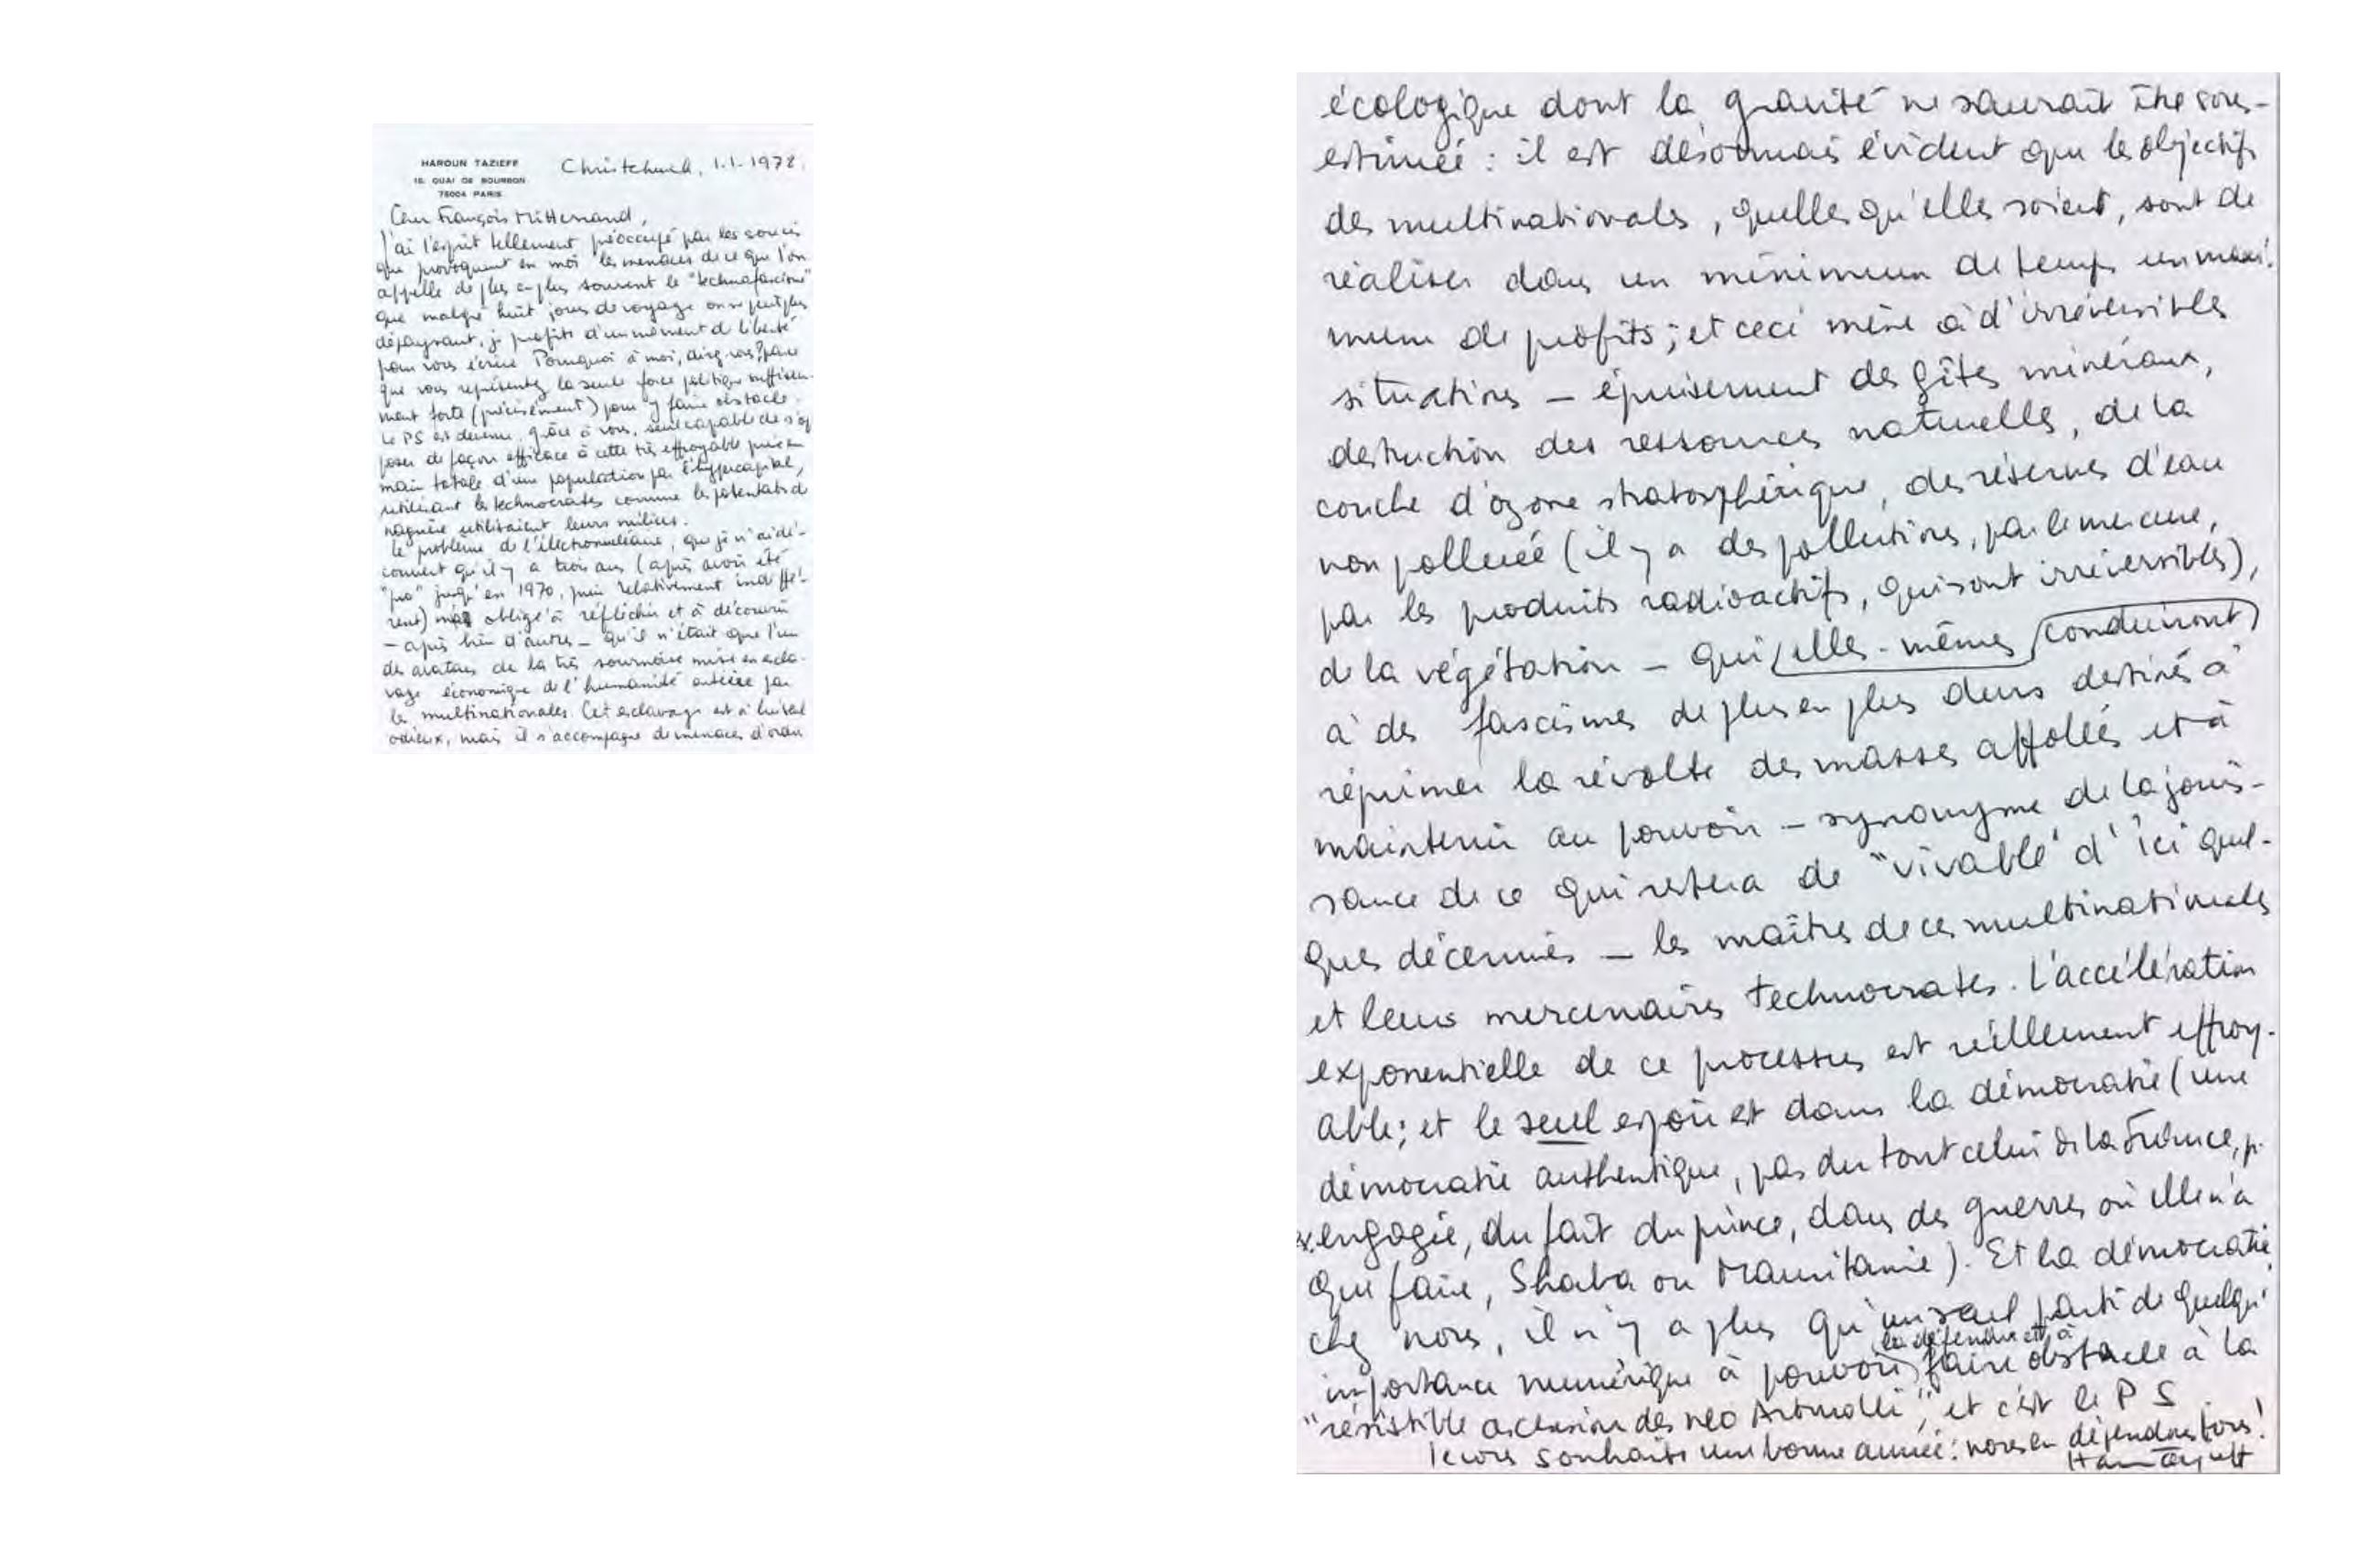 HAROUN TAZIEFF
15, QUAI DE BOURBON
75004 PARIS
Christchurch, 1.1.1978.
Cher François Mitterrand,
J'ai l'esprit tellement préoccupé par les soucis
que provoquent en moi les menaces de ce que l'on
appelle de plus en plus souvent le "technofascisme"
que malgré huit jours de voyage on ne peut plus
dépaysant, je profite d'un moment de liberté
pour vous écrire. Pourquoi à moi, direz-vous? parce
que vous représentez la seule force politique suffisam-
ment forte (précisément) pour y faire obstacle.
Le PS est devenu, grâce à vous, seul capable de s'op
poser de façon efficace à cette très effroyable prise en
main totale d'une population par l'hypercapital,
utilisant les technocrates comme les potentats de
naguère utilisaient leurs milices.
Le problème de l'électronucléaire, que je n'ai dé-
couvert qu'il y a trois ans (après avoir été
"pro" jusqu'en 1970, puis relativement indiffé-
rent) m'a obligé à réfléchir et à découvrir
– après bien d'autres – qu'il n'était que l'un
des avatars de la très sournoise mise en escla-
vage économique de l'humanité entière par
les multinationales. Cet esclavage est à lui seul
odieux, mais il s'accompagne de menaces d'ordre
écologique dont la gravité ne saurait être sous-
estimée : il est désormais évident que les objectifs
des multinationales, quelles qu'elles soient, sont de
réaliser dans un minimum de temps un maxi-
mum de profits ; et ceci mène à d'irréversibles
situations – épuisement des gîtes minéraux,
destruction des ressources naturelles, de la
couche d'ozone stratosphérique, des réserves d'eau
non polluée (il y a des pollutions, par le mercure,
par les produits radioactifs, qui sont irréversibles),
de la végétation – qui elles-mêmes conduiront
à des fascismes de plus en plus durs destinés à
réprimer la révolte des masses affolées et à
maintenir au pouvoir – synonyme de la jouis-
sance de ce qui restera de "vivable" d'ici quel-
ques décennies – les maîtres de ces multinationales
et leurs mercenaires technocrates. L'accélération
exponentielle de ce processus est réellement effroy-
able ; et le seul espoir est dans la démocratie (une
démocratie authentique, pas du tout celui de la France, p.
ex. engagée, du fait du prince, dans des guerres où elle n'a
que faire, Shaba ou Mauritanie). Et la démocratie,
chez nous, il n'y a plus qu'un seul parti de quelqu'
importance numérique à pouvoir la défendre et à faire obstacle à la
"résistible ascension des néo Arturo Ui", et c'est le PS
Je vous souhaite une bonne année : nous en dépendons tous !
Haroun Tazieff